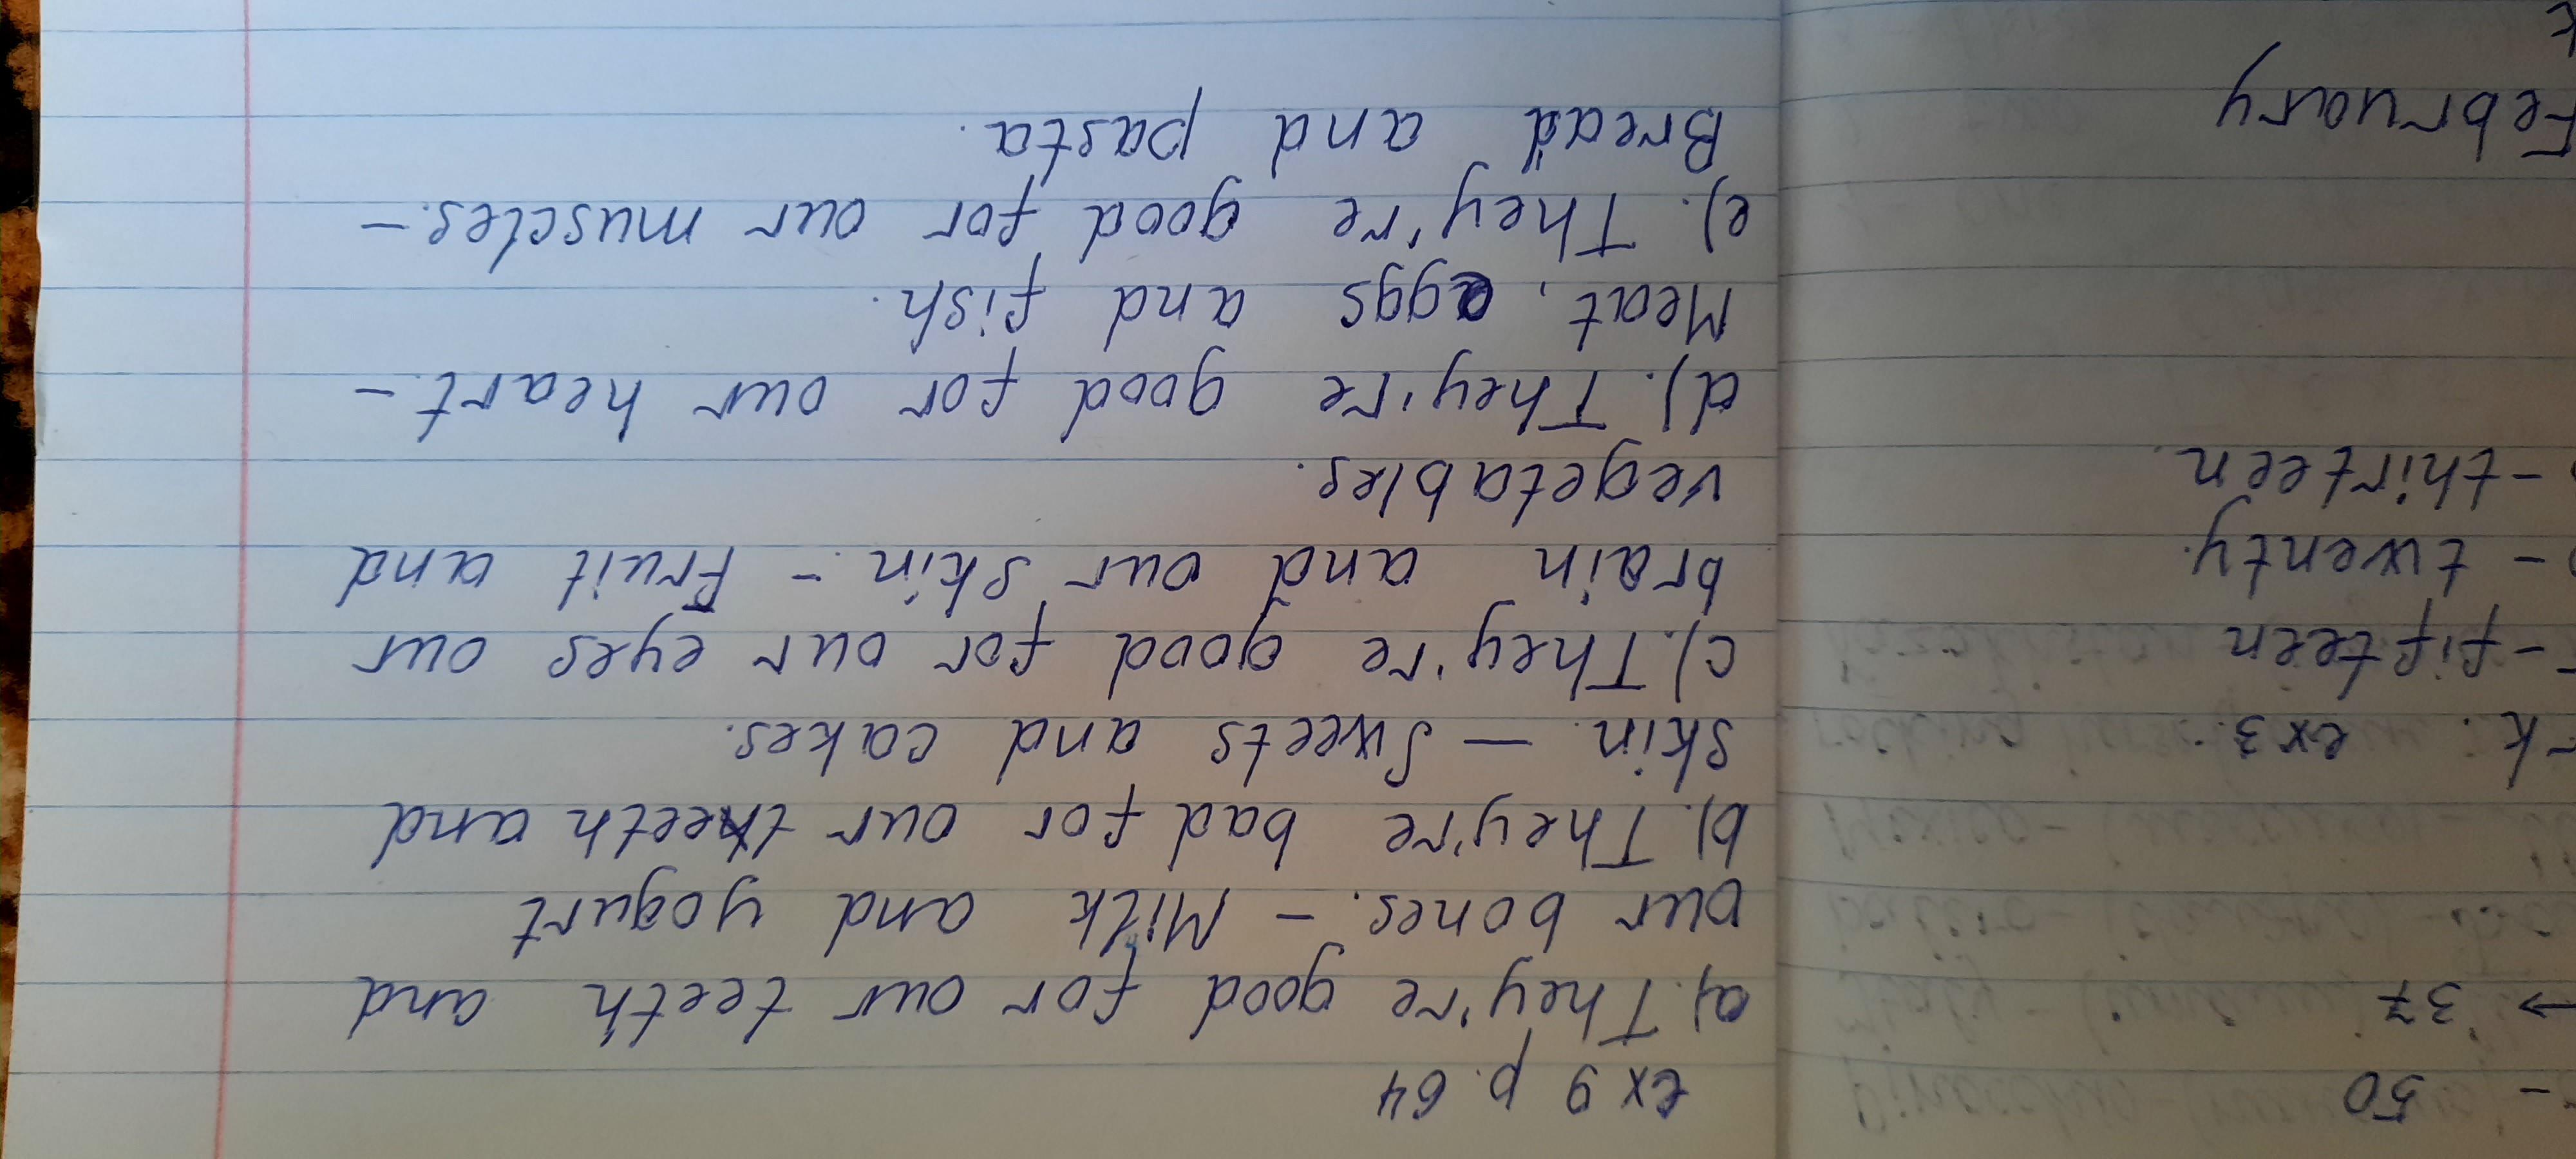 ex 9 p. 64
a). They're good for our teeth and
our bones. - Milk and yogurt
b). They're bad for our teeth and
skin. - Sweets and cakes.
c). They're good for our eyes our
brain and our skin. - Fruit and
vegetables.
d). They're good for our heart. -
Meat, eggs and fish.
e). They're good for our muscles. -
Bread and pasta.
- 50
→ 37
ex 3.
- fifteen
- twenty.
- thirteen.
February